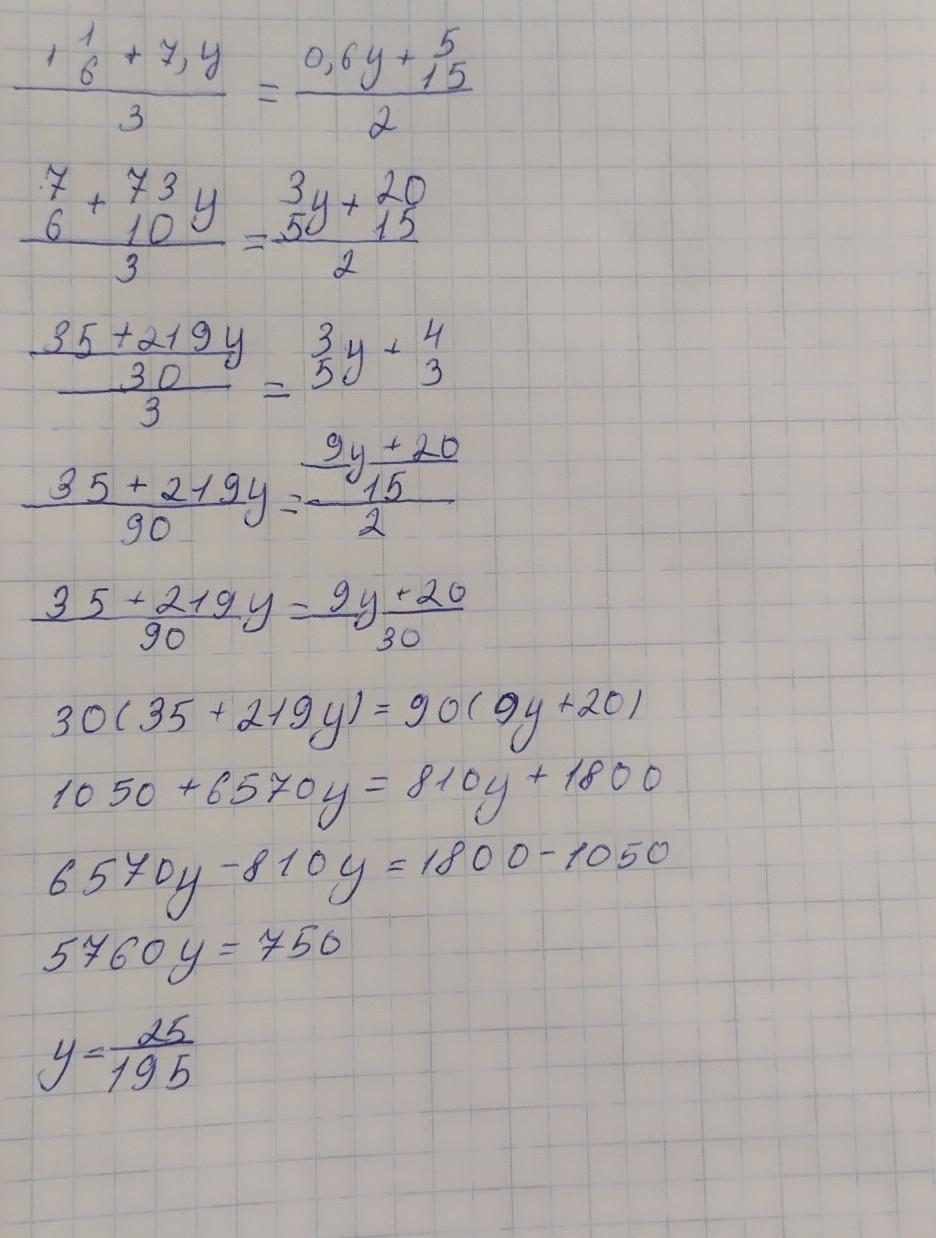 1 1/6 + 7,y / 3 = 0,6y + 5/15 / 2
7/6 + 73/10 y / 3 = 3/5 y + 20/15 / 2
35 + 219y / 30 / 3 = 3/5 y + 4/3
35 + 219y / 90 = 9y + 20 / 15 / 2
35 + 219y / 90 = 9y + 20 / 30
30(35 + 219y) = 90(9y + 20)
1050 + 6570y = 810y + 1800
6570y - 810y = 1800 - 1050
5760y = 750
y = 25/195